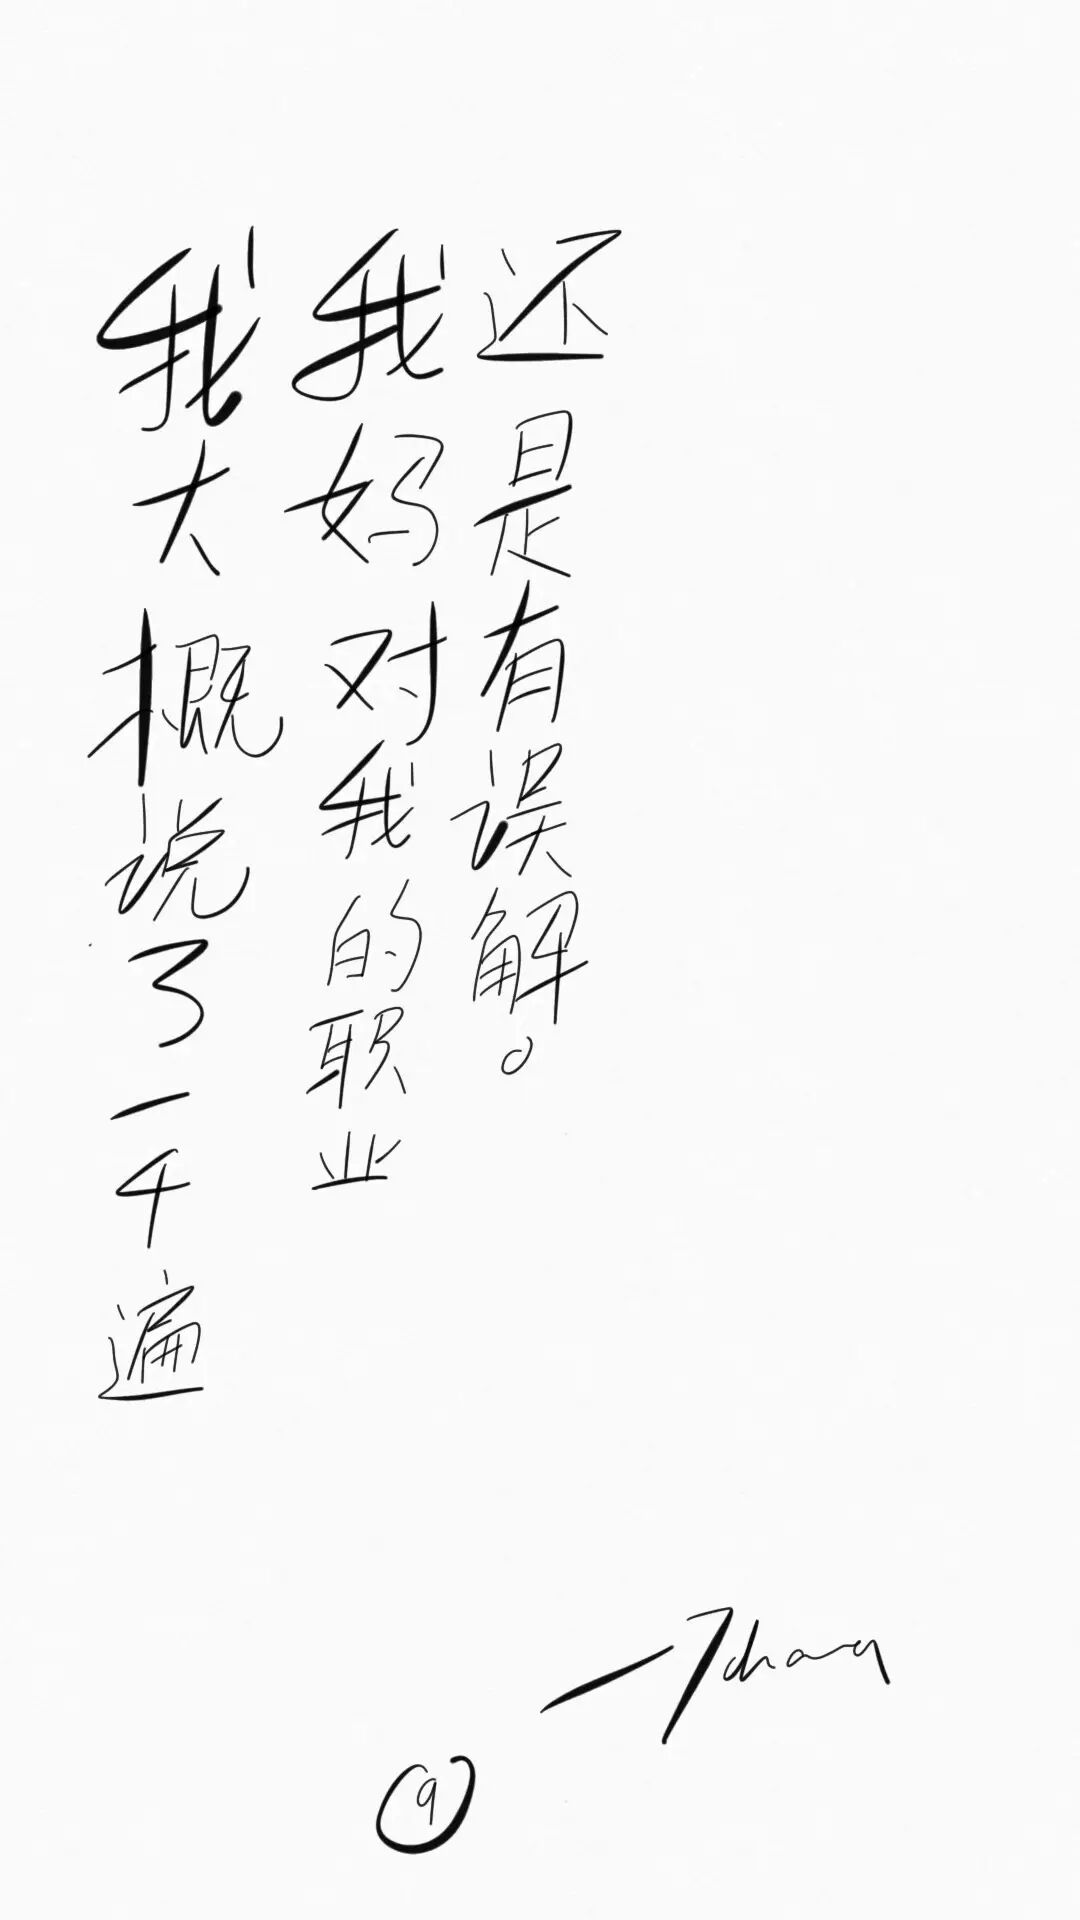 我大概说了一千遍
我妈对我的职业
还是有误解。
9